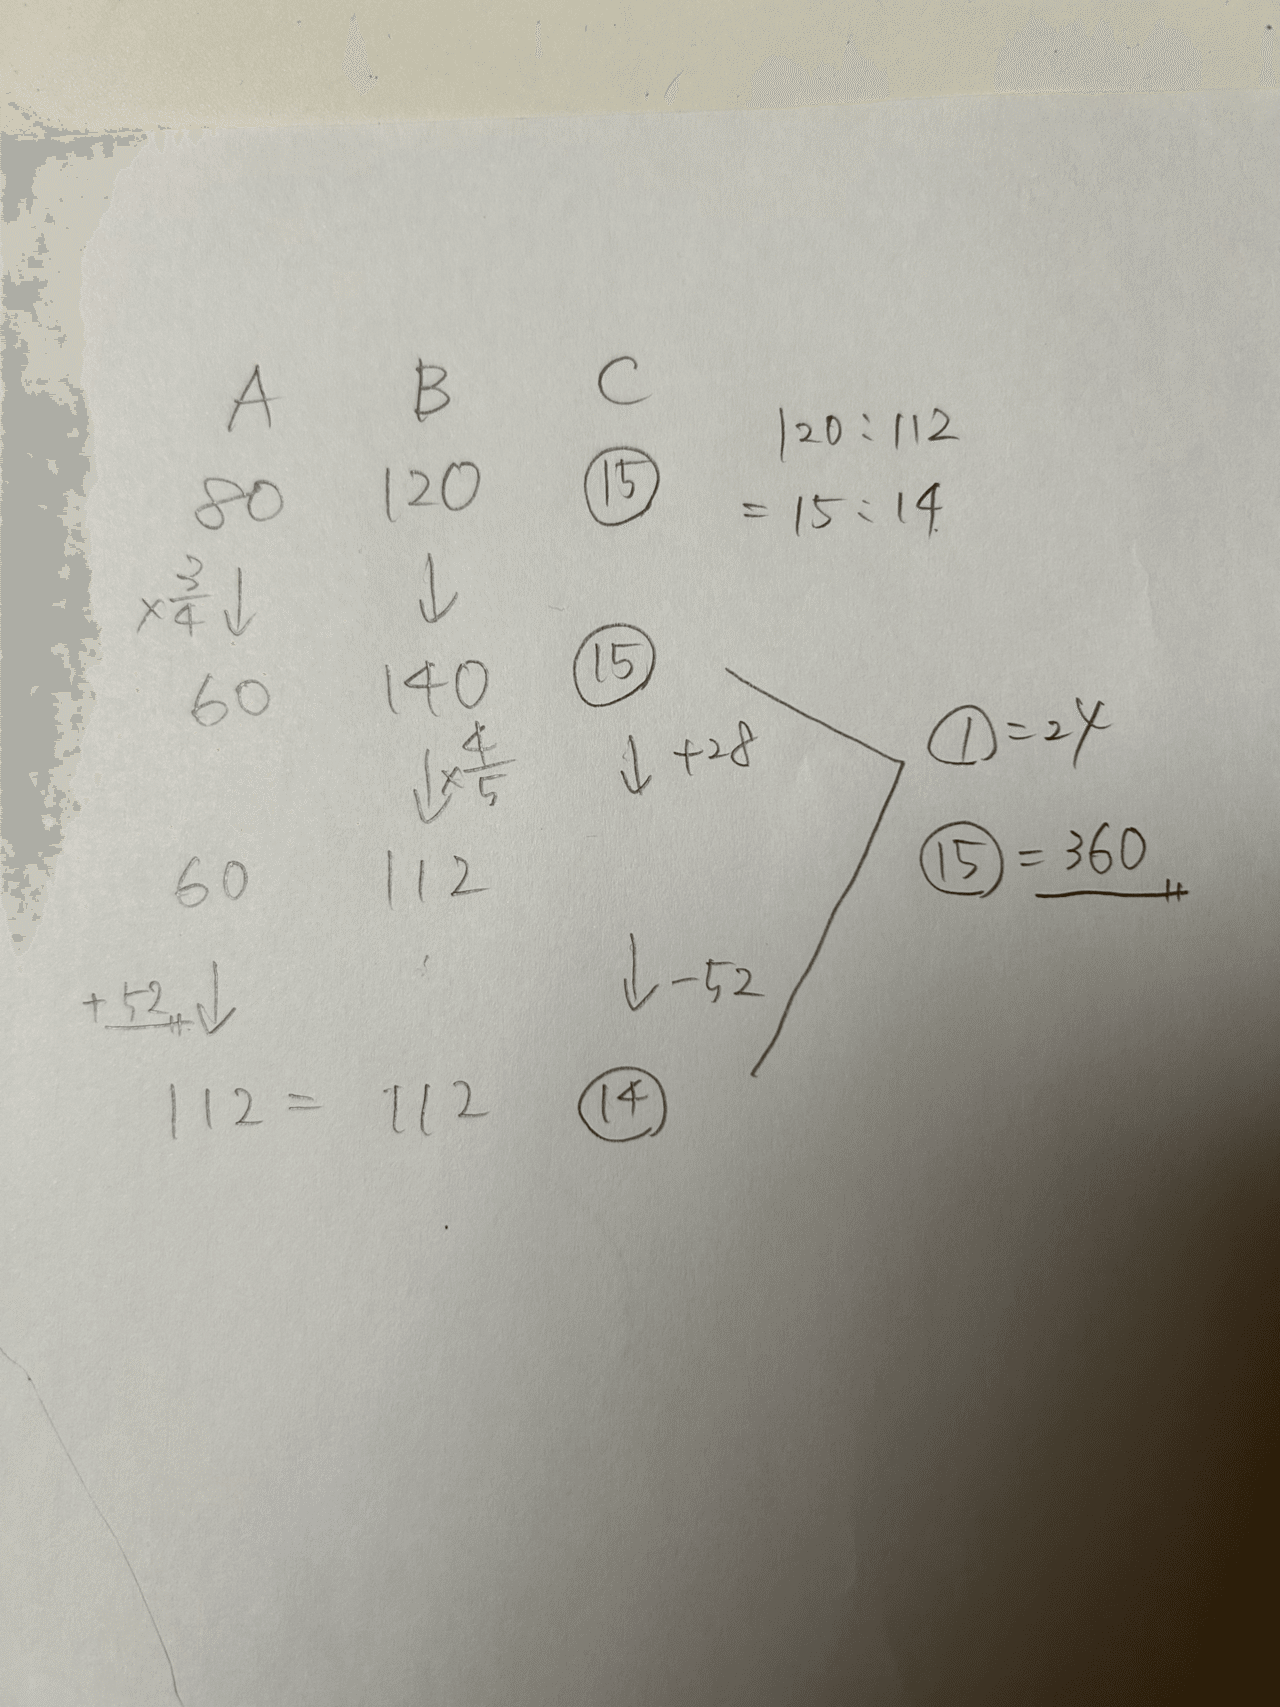 A B C
80 120 ⑮ 120:112
= 15:14
×3/4 ↓ ↓
60 140 ⑮
↓×4/5 ↓ +28 ①=24
60 112 ⑮=360
+52 ↓ ↓-52
112 = 112 ⑭